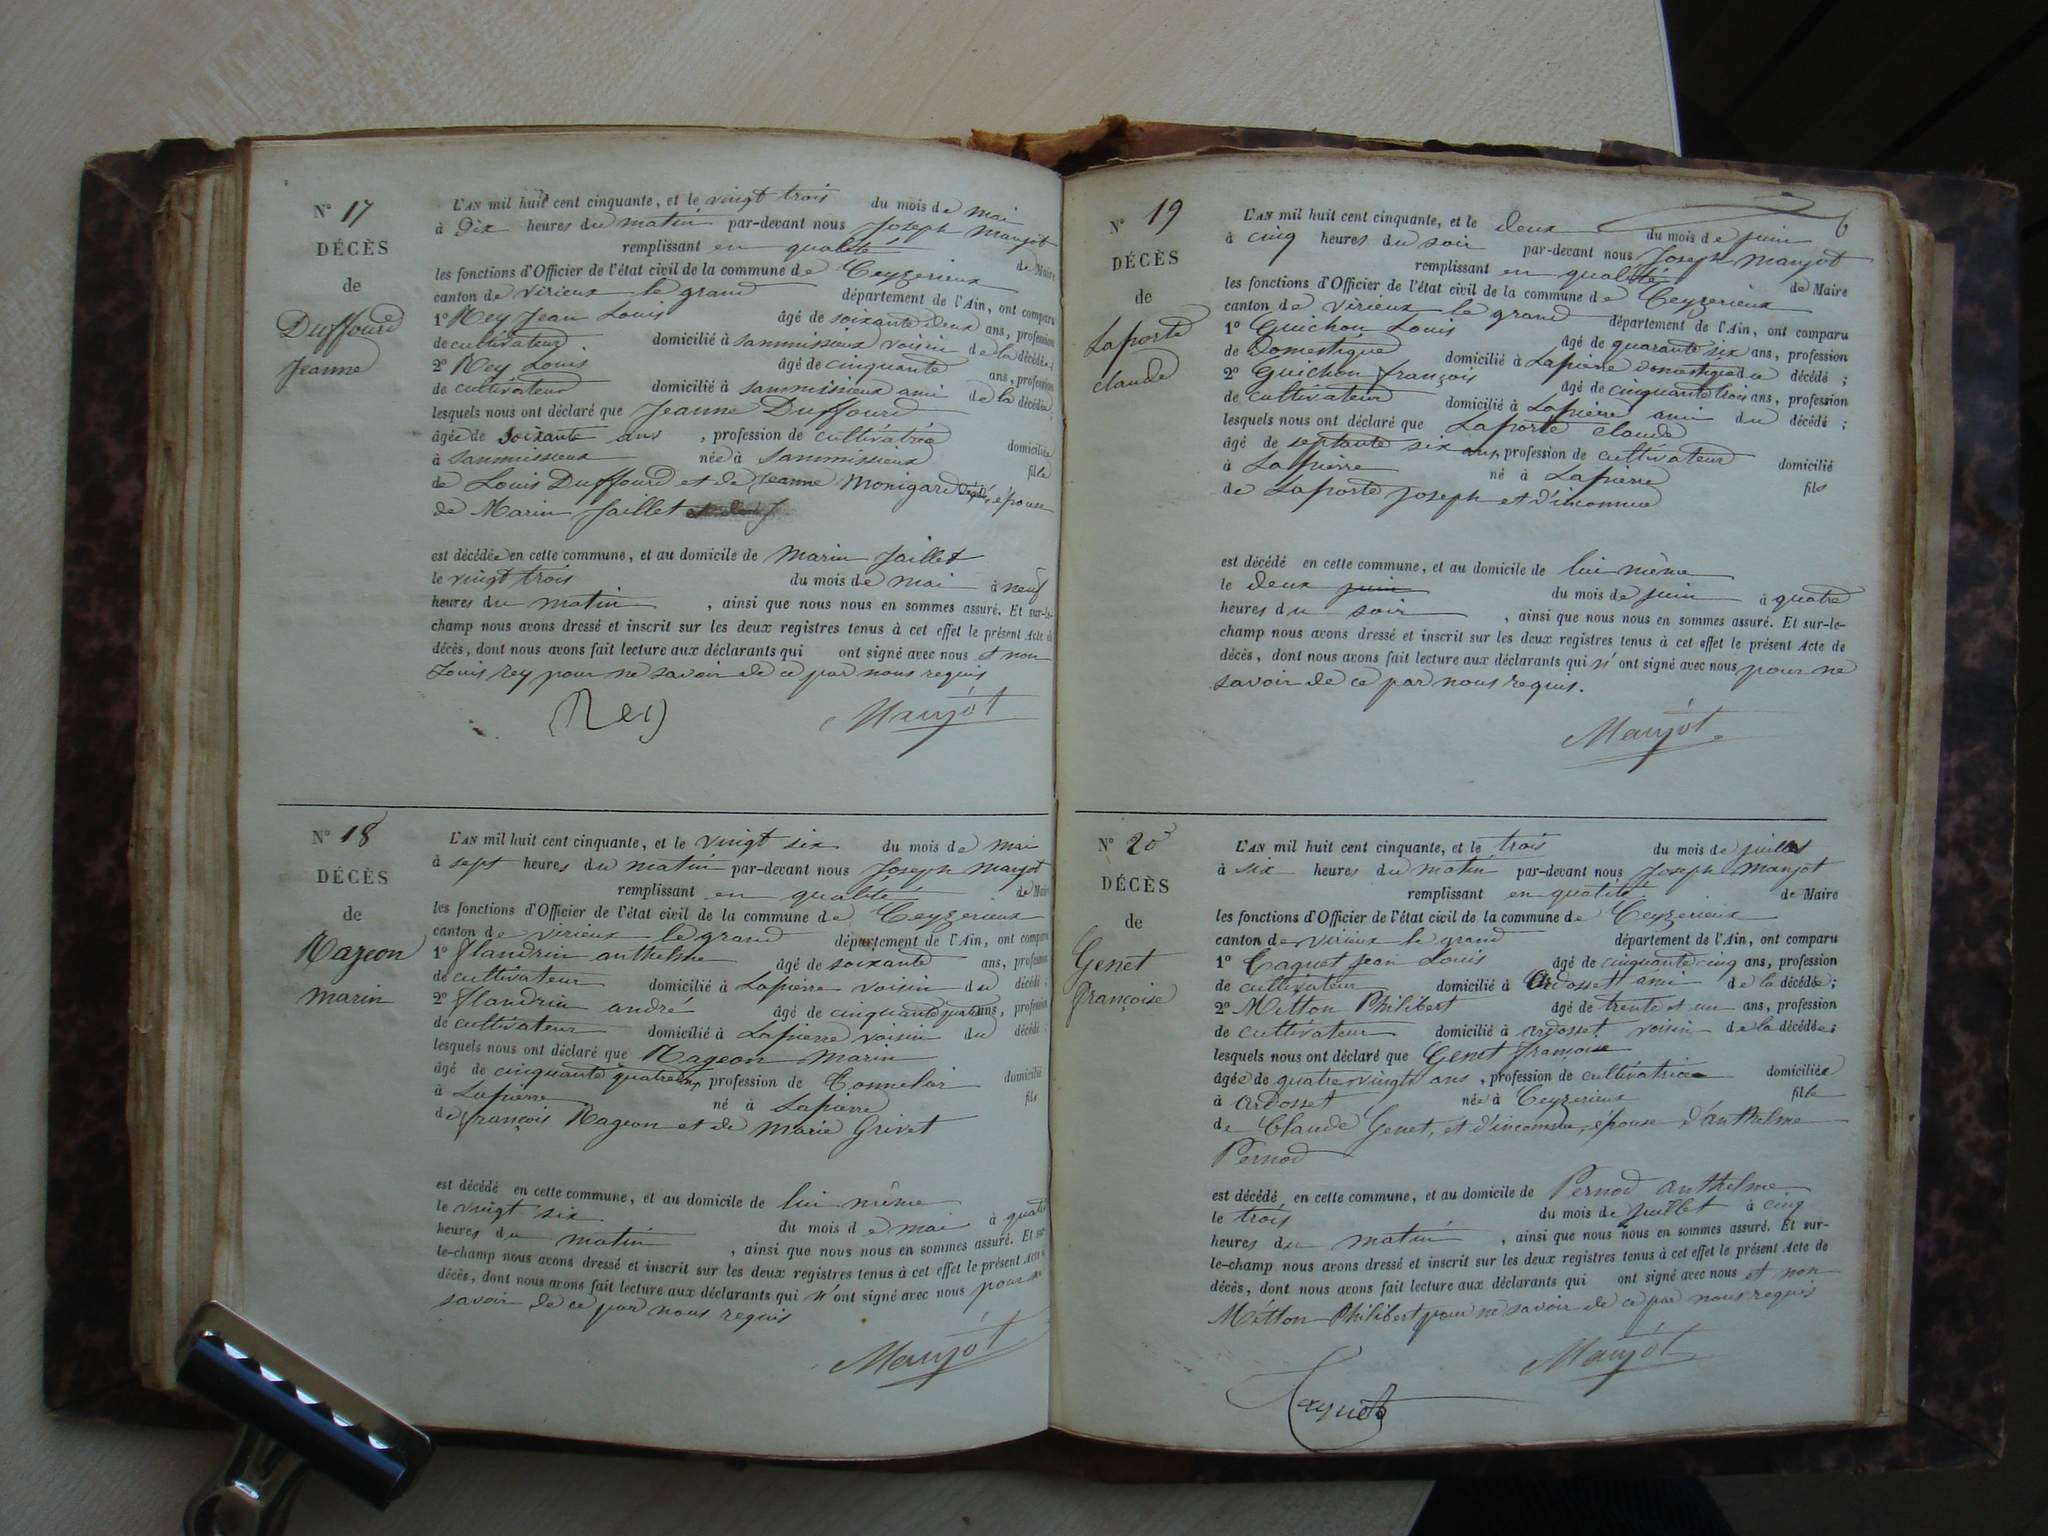 N° 17
DÉCÈS
de
Duffourd
Jeanne
L'AN mil huit cent cinquante, et le vingt trois du mois de mai
à Dix heures du matin par-devant nous Joseph Maujot
remplissant en qualité de Maire
les fonctions d'Officier de l'état civil de la commune de Ceyzerieux
canton de virieux le grand département de l'Ain, ont comparu
1° Rey Jean Louis âgé de soixante deux ans, profession
de cultivateur domicilié à Sammissieux voisin de la décédée ;
2° Rey Louis âgé de cinquante ans, profession
de cultivateur domicilié à Sammissieux ami de la décédée ;
lesquels nous ont déclaré que Jeanne Duffourd
âgée de soixante ans , profession de cultivatrice domiciliée
à Sammissieux née à Sammissieux fille
de Louis Duffourd et de Jeanne Monigard épouse
de Marin Jaillet
est décédée en cette commune, et au domicile de Marin Jaillet
le vingt trois du mois de mai à neuf
heures du matin , ainsi que nous nous en sommes assuré. Et sur-le-
champ nous avons dressé et inscrit sur les deux registres tenus à cet effet le présent Acte de
décès, dont nous avons fait lecture aux déclarants qui ont signé avec nous et non
Louis rey pour ne savoir de ce par nous requis
Rey Maujot
N° 18
DÉCÈS
de
Rageon
marin
L'AN mil huit cent cinquante, et le vingt six du mois de mai
à sept heures du matin par-devant nous Joseph Maujot
remplissant en qualité de Maire
les fonctions d'Officier de l'état civil de la commune de Ceyzerieux
canton de virieux le grand département de l'Ain, ont comparu
1° flandrin anthelme âgé de soixante ans, profession
de cultivateur domicilié à Lapierre voisin du décédé ;
2° flandrin andré âgé de cinquante quatre ans, profession
de cultivateur domicilié à Lapierre voisin du décédé ;
lesquels nous ont déclaré que Rageon Marin
âgé de cinquante quatre ans, profession de Tonnelier domicilié
à Lapierre né à Lapierre fils
de françois Rageon et de Marie Grivet
est décédé en cette commune, et au domicile de lui même
le vingt six du mois de mai à quatre
heures du matin , ainsi que nous nous en sommes assuré. Et sur-
le-champ nous avons dressé et inscrit sur les deux registres tenus à cet effet le présent Acte de
décès, dont nous avons fait lecture aux déclarants qui n'ont signé avec nous pour ne
savoir de ce par nous requis
Maujot
6
N° 19
DÉCÈS
de
Laporte
claude
L'AN mil huit cent cinquante, et le deux du mois de juin
à cinq heures du soir par-devant nous Joseph Maujot
remplissant en qualité de Maire
les fonctions d'Officier de l'état civil de la commune de Ceyzerieux
canton de virieux le grand département de l'Ain, ont comparu
1° Guichon Louis âgé de quarante six ans, profession
de Domestique domicilié à Lapierre domestique du décédé ;
2° Guichon françois âgé de cinquante trois ans, profession
de cultivateur domicilié à Lapierre ami du décédé ;
lesquels nous ont déclaré que Laporte claude
âgé de septante six ans, profession de cultivateur domicilié
à Lapierre né à Lapierre fils
de Laporte Joseph et d'inconnue
est décédé en cette commune, et au domicile de lui même
le deux juin du mois de juin à quatre
heures du soir , ainsi que nous nous en sommes assuré. Et sur-le-
champ nous avons dressé et inscrit sur les deux registres tenus à cet effet le présent Acte de
décès, dont nous avons fait lecture aux déclarants qui n'ont signé avec nous pour ne
savoir de ce par nous requis.
Maujot
N° 20
DÉCÈS
de
Genet
françoise
L'AN mil huit cent cinquante, et le trois du mois de juillet
à six heures du matin par-devant nous Joseph Maujot
remplissant en qualité de Maire
les fonctions d'Officier de l'état civil de la commune de Ceyzerieux
canton de virieux le grand département de l'Ain, ont comparu
1° Taquet Jean Louis âgé de cinquante cinq ans, profession
de cultivateur domicilié à Ardosset ami de la décédée ;
2° Mitton Philibert âgé de trente et un ans, profession
de cultivateur domicilié à ardosset voisin de la décédée ;
lesquels nous ont déclaré que Genet françoise
âgée de quatre vingts ans , profession de cultivatrice domiciliée
à Ardosset née à Ceyzerieux fille
de Claude Genet, et d'inconnue, épouse d'anthelme
Pernod
est décédé en cette commune, et au domicile de Pernod anthelme
le trois du mois de juillet à cinq
heures du matin , ainsi que nous nous en sommes assuré. Et sur-
le-champ nous avons dressé et inscrit sur les deux registres tenus à cet effet le présent Acte de
décès, dont nous avons fait lecture aux déclarants qui ont signé avec nous et non
Mitton Philibert pour ne savoir de ce par nous requis
Maujot
Taquet